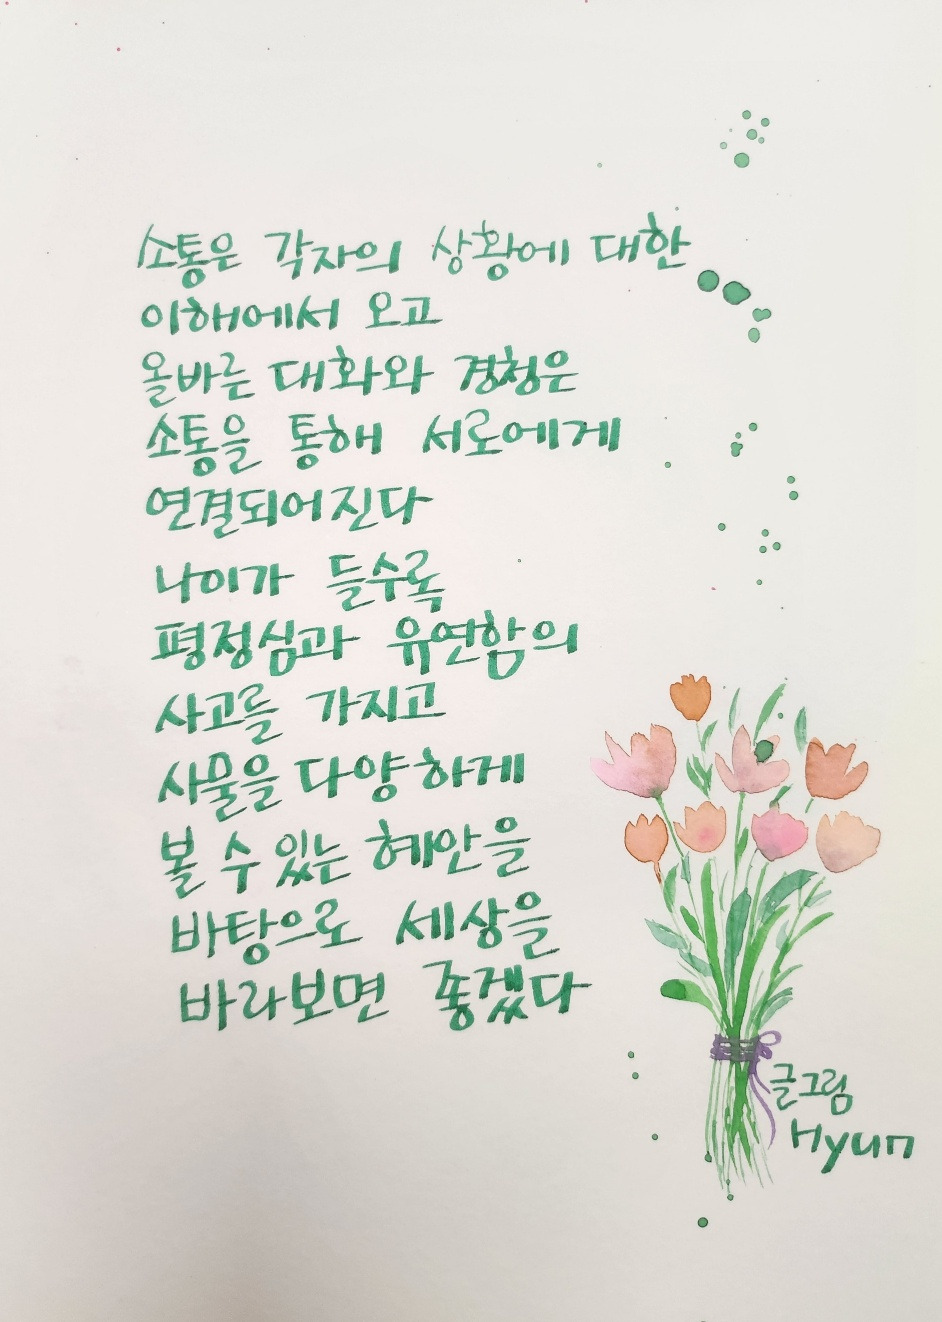 소통은 각자의 상황에 대한
이해에서 오고
올바른 대화와 경청은
소통을 통해 서로에게
연결되어진다
나이가 들수록
평정심과 유연함의
사고를 가지고
사물을 다양하게
볼 수 있는 혜안을
바탕으로 세상을
바라보면 좋겠다
글그림
Hyun